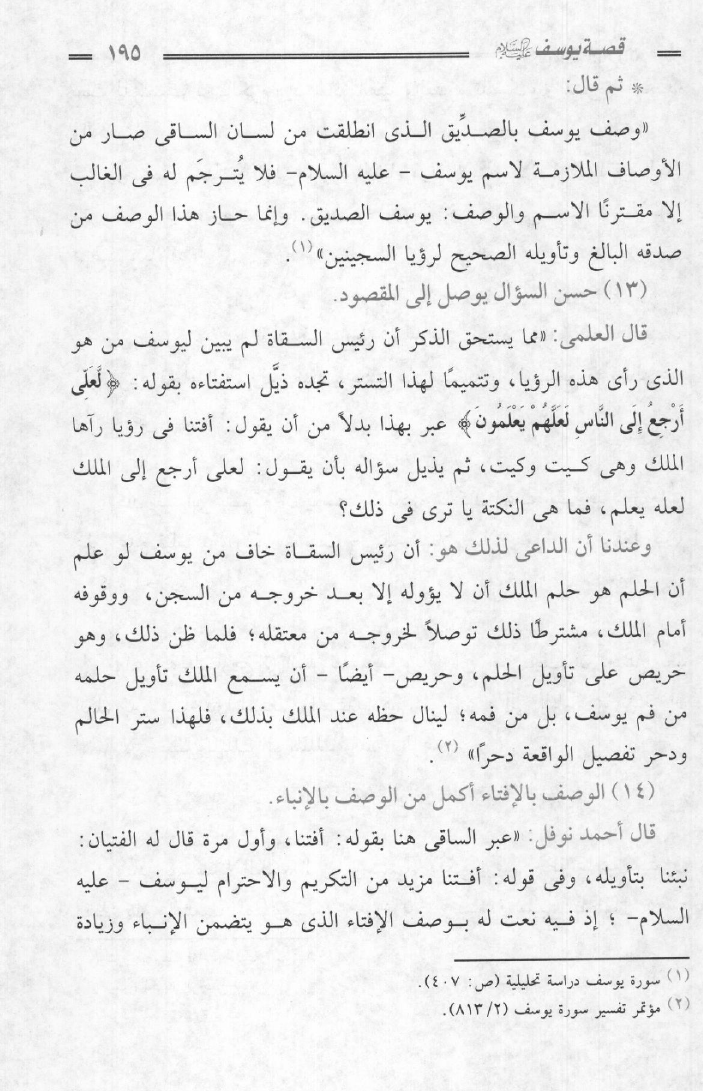 قصة يوسف عليه السلام
١٩٥
* ثم قال:
«وصف يوسف بالصدِّيق الذى انطلقت من لسان الساقى صار من
الأوصاف الملازمة لاسم يوسف - عليه السلام- فلا يُترجَم له فى الغالب
إلا مقترنًا الاسم والوصف: يوسف الصديق. وإنما حاز هذا الوصف من
صدقه البالغ وتأويله الصحيح لرؤيا السجينين»(١).
(١٣) حسن السؤال يوصل إلى المقصود.
قال العلمى: «مما يستحق الذكر أن رئيس السقاة لم يبين ليوسف من هو
الذى رأى هذه الرؤيا، وتتميمًا لهذا التستر، تجده ذيَّل استفتاءه بقوله: ﴿لَّعَلِّى
أَرْجِعُ إِلَى النَّاسِ لَعَلَّهُمْ يَعْلَمُونَ﴾ عبر بهذا بدلاً من أن يقول: أفتنا فى رؤيا رآها
الملك وهى كيت وكيت، ثم يذيل سؤاله بأن يقول: لعلى أرجع إلى الملك
لعله يعلم، فما هى النكتة يا ترى فى ذلك؟
وعندنا أن الداعى لذلك هو: أن رئيس السقاة خاف من يوسف لو علم
أن الحلم هو حلم الملك أن لا يؤوله إلا بعد خروجه من السجن، ووقوفه
أمام الملك، مشترطًا ذلك توصلاً لخروجه من معتقله؛ فلما ظن ذلك، وهو
حريص على تأويل الحلم، وحريص- أيضًا - أن يسمع الملك تأويل حلمه
من فم يوسف، بل من فمه؛ لينال حظه عند الملك بذلك، فلهذا ستر الحالم
ودحر تفصيل الواقعة دحرًا» (٢).
(١٤) الوصف بالإفتاء أكمل من الوصف بالإنباء.
قال أحمد نوفل: «عبر الساقى هنا بقوله: أفتنا، وأول مرة قال له الفتيان:
نبئنا بتأويله، وفى قوله: أفتنا مزيد من التكريم والاحترام ليوسف - عليه
السلام- ؛ إذ فيه نعت له بوصف الإفتاء الذى هو يتضمن الإنباء وزيادة
(١) سورة يوسف دراسة تحليلية (ص: ٤٠٧).
(٢) مؤتمر تفسير سورة يوسف (٨١٣/٢).